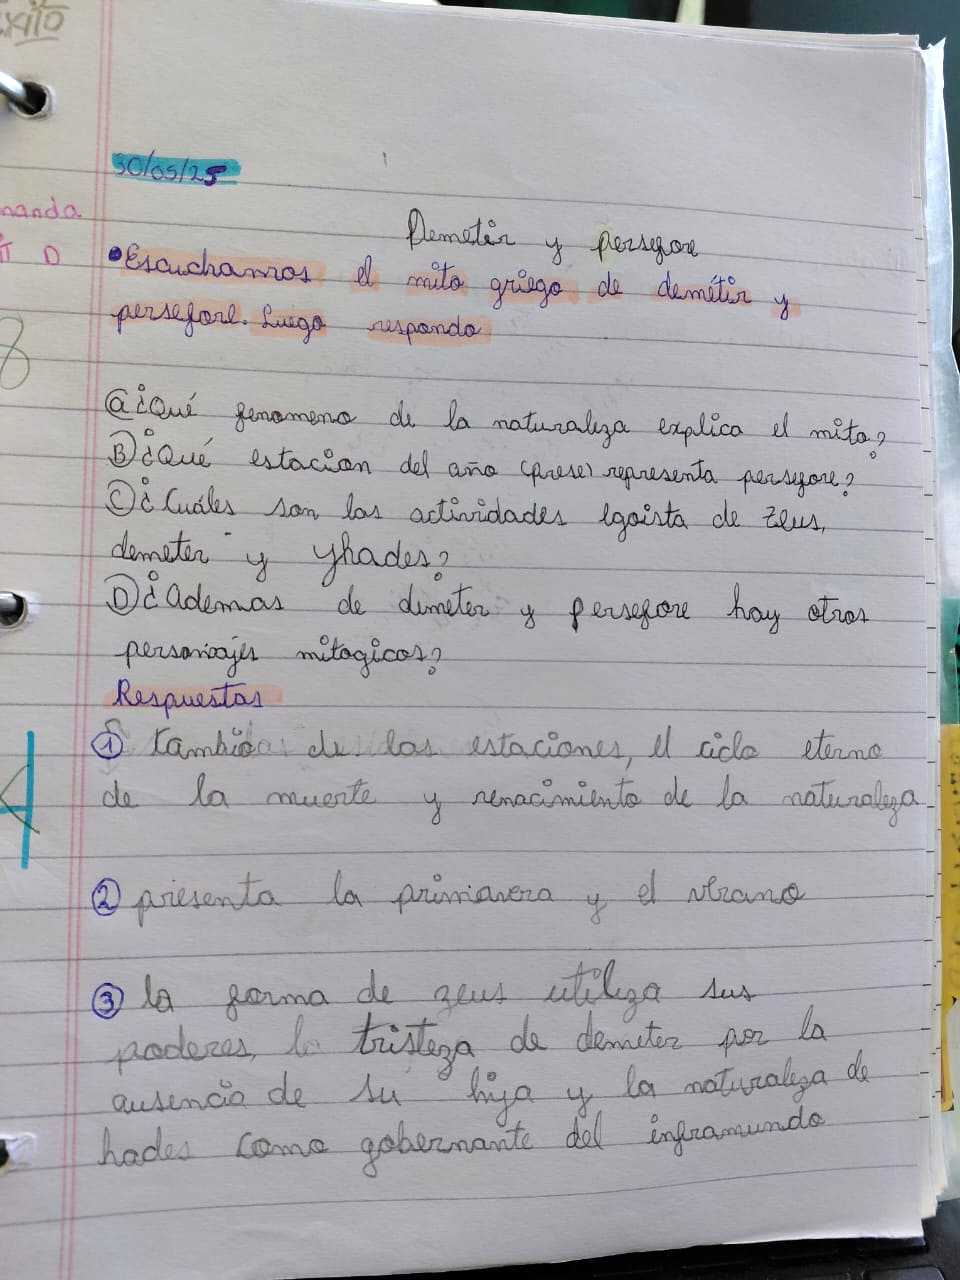 éxito
30/05/25
manda
D
Demetir y persefore
•Escuchamos el mito griego de demétir y
persefore. Luego respondo
8
ⓐ ¿Qué fenomeno de la naturaleza explica el mito?
Ⓑ ¿Qué estacion del año (prese) representa persefore?
Ⓒ ¿Cuáles son las actividades egoista de Zeus,
demeter y yhades?
Ⓓ ¿Ademas de demeter y persefore hay otros
personajes mitogicos?
Respuestas
① Cambio de las estaciones, el ciclo eterno
de la muerte y renacimiento de la naturaleza
② presenta la primavera y el verano
③ la forma de zeus utiliza sus
poderes, la tristeza de demeter por la
ausencia de su hija y la naturaleza de
hades como gobernante del inframundo